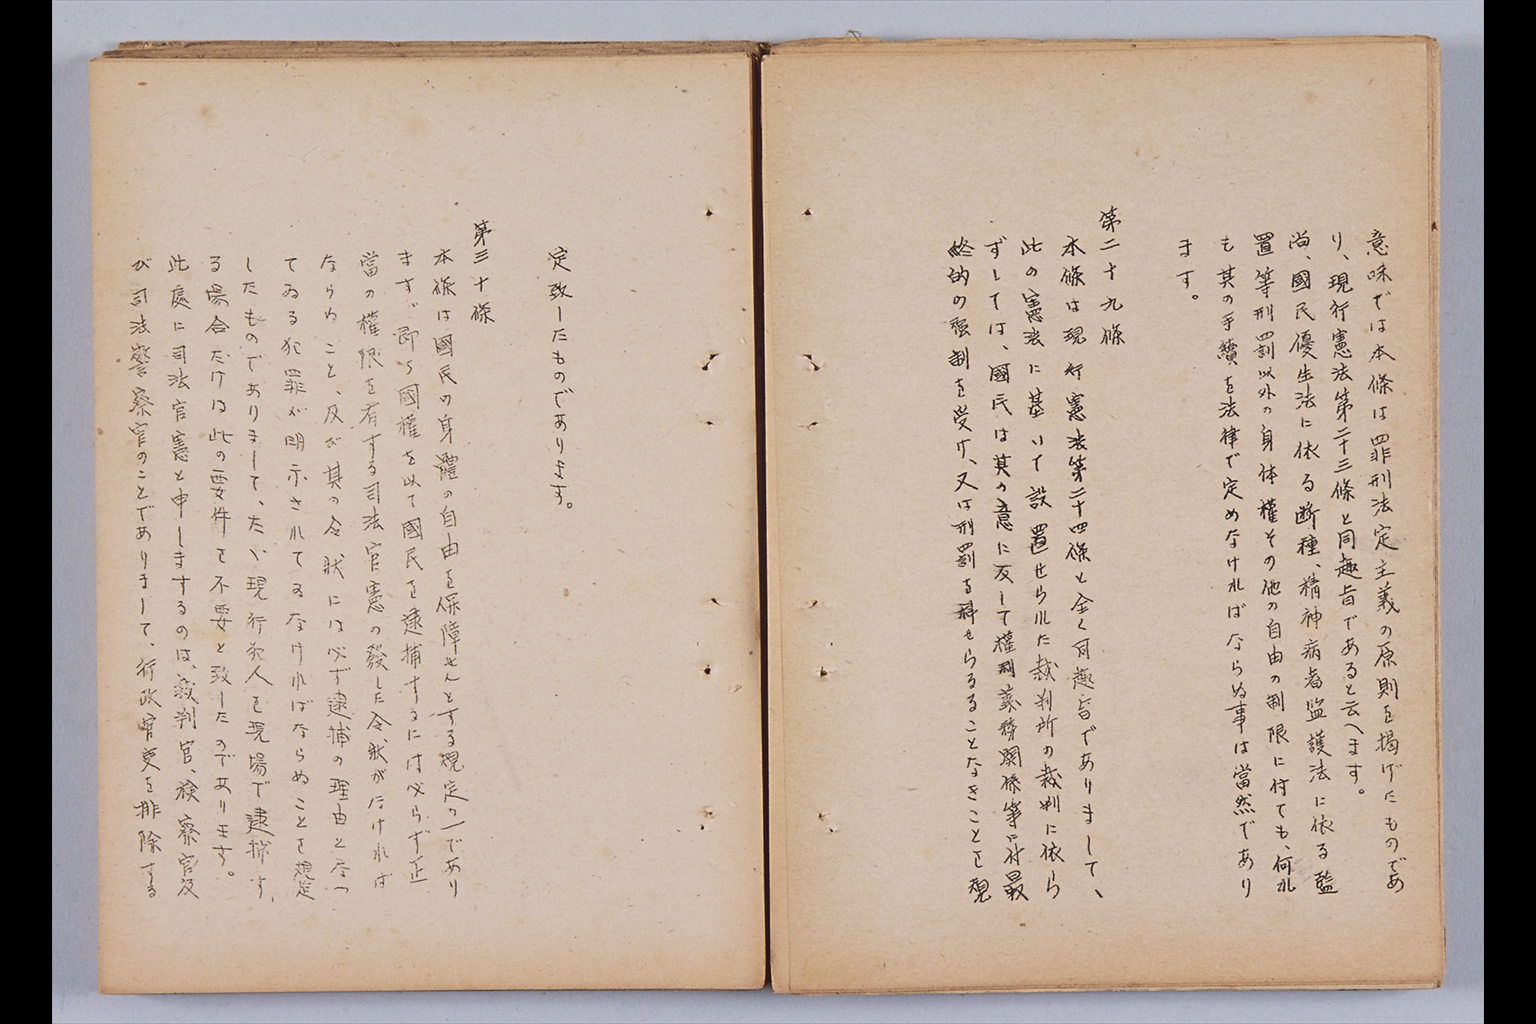 意味では本條は罪刑法定主義の原則を掲げたものであ
り、現行憲法第二十三條と同趣旨であると云へます。
尚、國民優生法に依る断種、精神病者監護法に依る監
置等刑罰以外の身体權その他の自由の制限に付ても、何れ
も其の手續を法律で定めなければならぬ事は當然であり
ます。
第二十九條
本條は現行憲法第二十四條と全く同趣旨でありまして、
此の憲法に基いて設置せられた裁判所の裁判に依ら
ずしては、國民は其の意に反して權利義務関係等に付最
終的の强制を受け、又は刑罰を科せらるることなきことを規
定致したものであります。
第三十條
本條は國民の身體の自由を保障せんとする規定の一であり
ます。即ち國權を以て國民を逮捕するには必らず正
當の權限を有する司法官憲の發した令状がなければ
ならぬこと、及び其の令状には必ず逮捕の理由となつ
てゐる犯罪が明示されてゐなければならぬことを規定
したものでありまして、たゞ現行犯人を現場で逮捕す
る場合だけは此の要件を不要と致したのであります。
此處に司法官憲と申しますのは、裁判官、檢察官及
び司法警察官のことでありまして、行政官吏を排除する